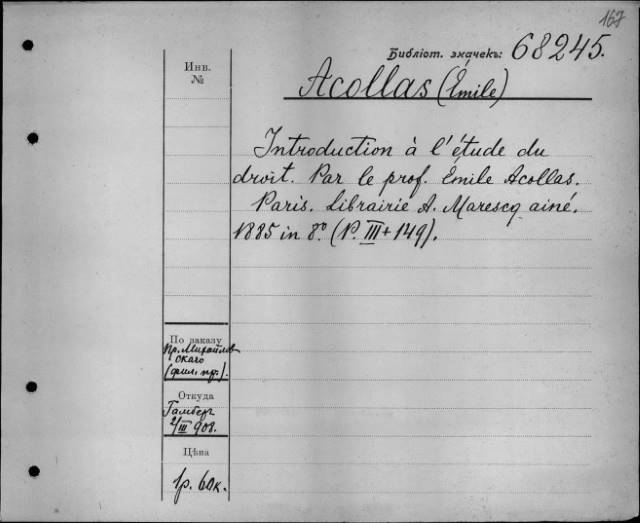 167
Библіот. значекъ: 68245.
Инв.
№
Acollas (Émile)
Introduction à l'étude du
droit. Par le prof. Émile Acollas.
Paris. Librairie A. Marescq ainé.
1885 in 8º (P. III + 149).
По заказу
Пр. Михайлов
скаго
(фил. пр.).
Откуда
Гамберг
2/III 908.
Цѣна
1р. 60к.